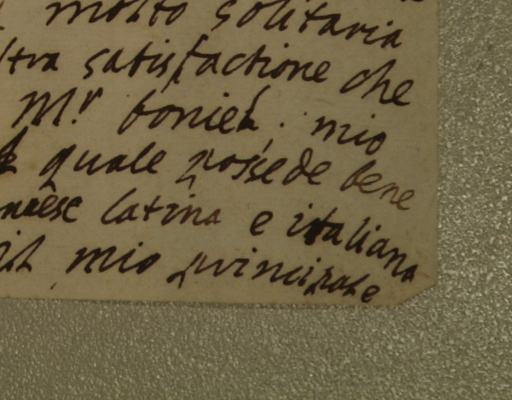 molto solitaria
ltra satisfactione che
M.r boniel. mio
quale possede bene
latina e italiana
il mio principale